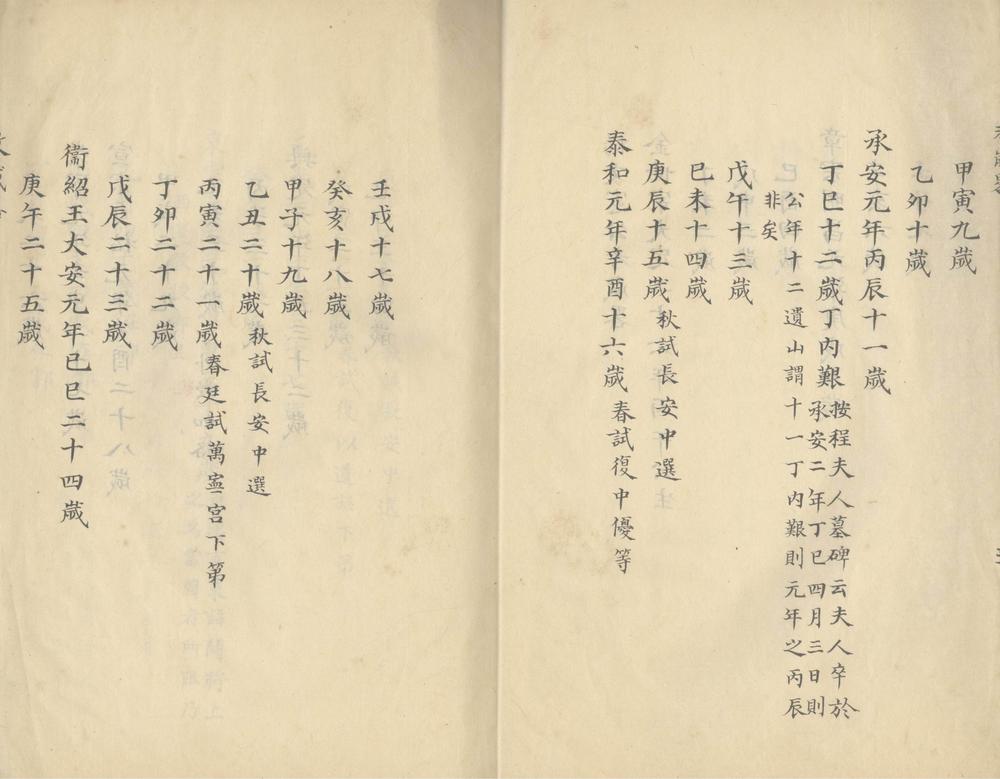 甲寅九歲
乙卯十歲
承安元年丙辰十一歲
丁巳十二歲丁內艱按程夫人墓碑云夫人卒於
承安二年丁巳四月三日則
公年十二遺山謂十一丁內艱則元年之丙辰
非矣
戊午十三歲
己未十四歲
庚辰十五歲秋試長安中選
泰和元年辛酉十六歲春試復中優等
壬戌十七歲
癸亥十八歲
甲子十九歲
乙丑二十歲秋試長安中選
丙寅二十一歲春廷試萬寧宮下第
丁卯二十二歲
戊辰二十三歲
衞紹王大安元年己巳二十四歲
庚午二十五歲